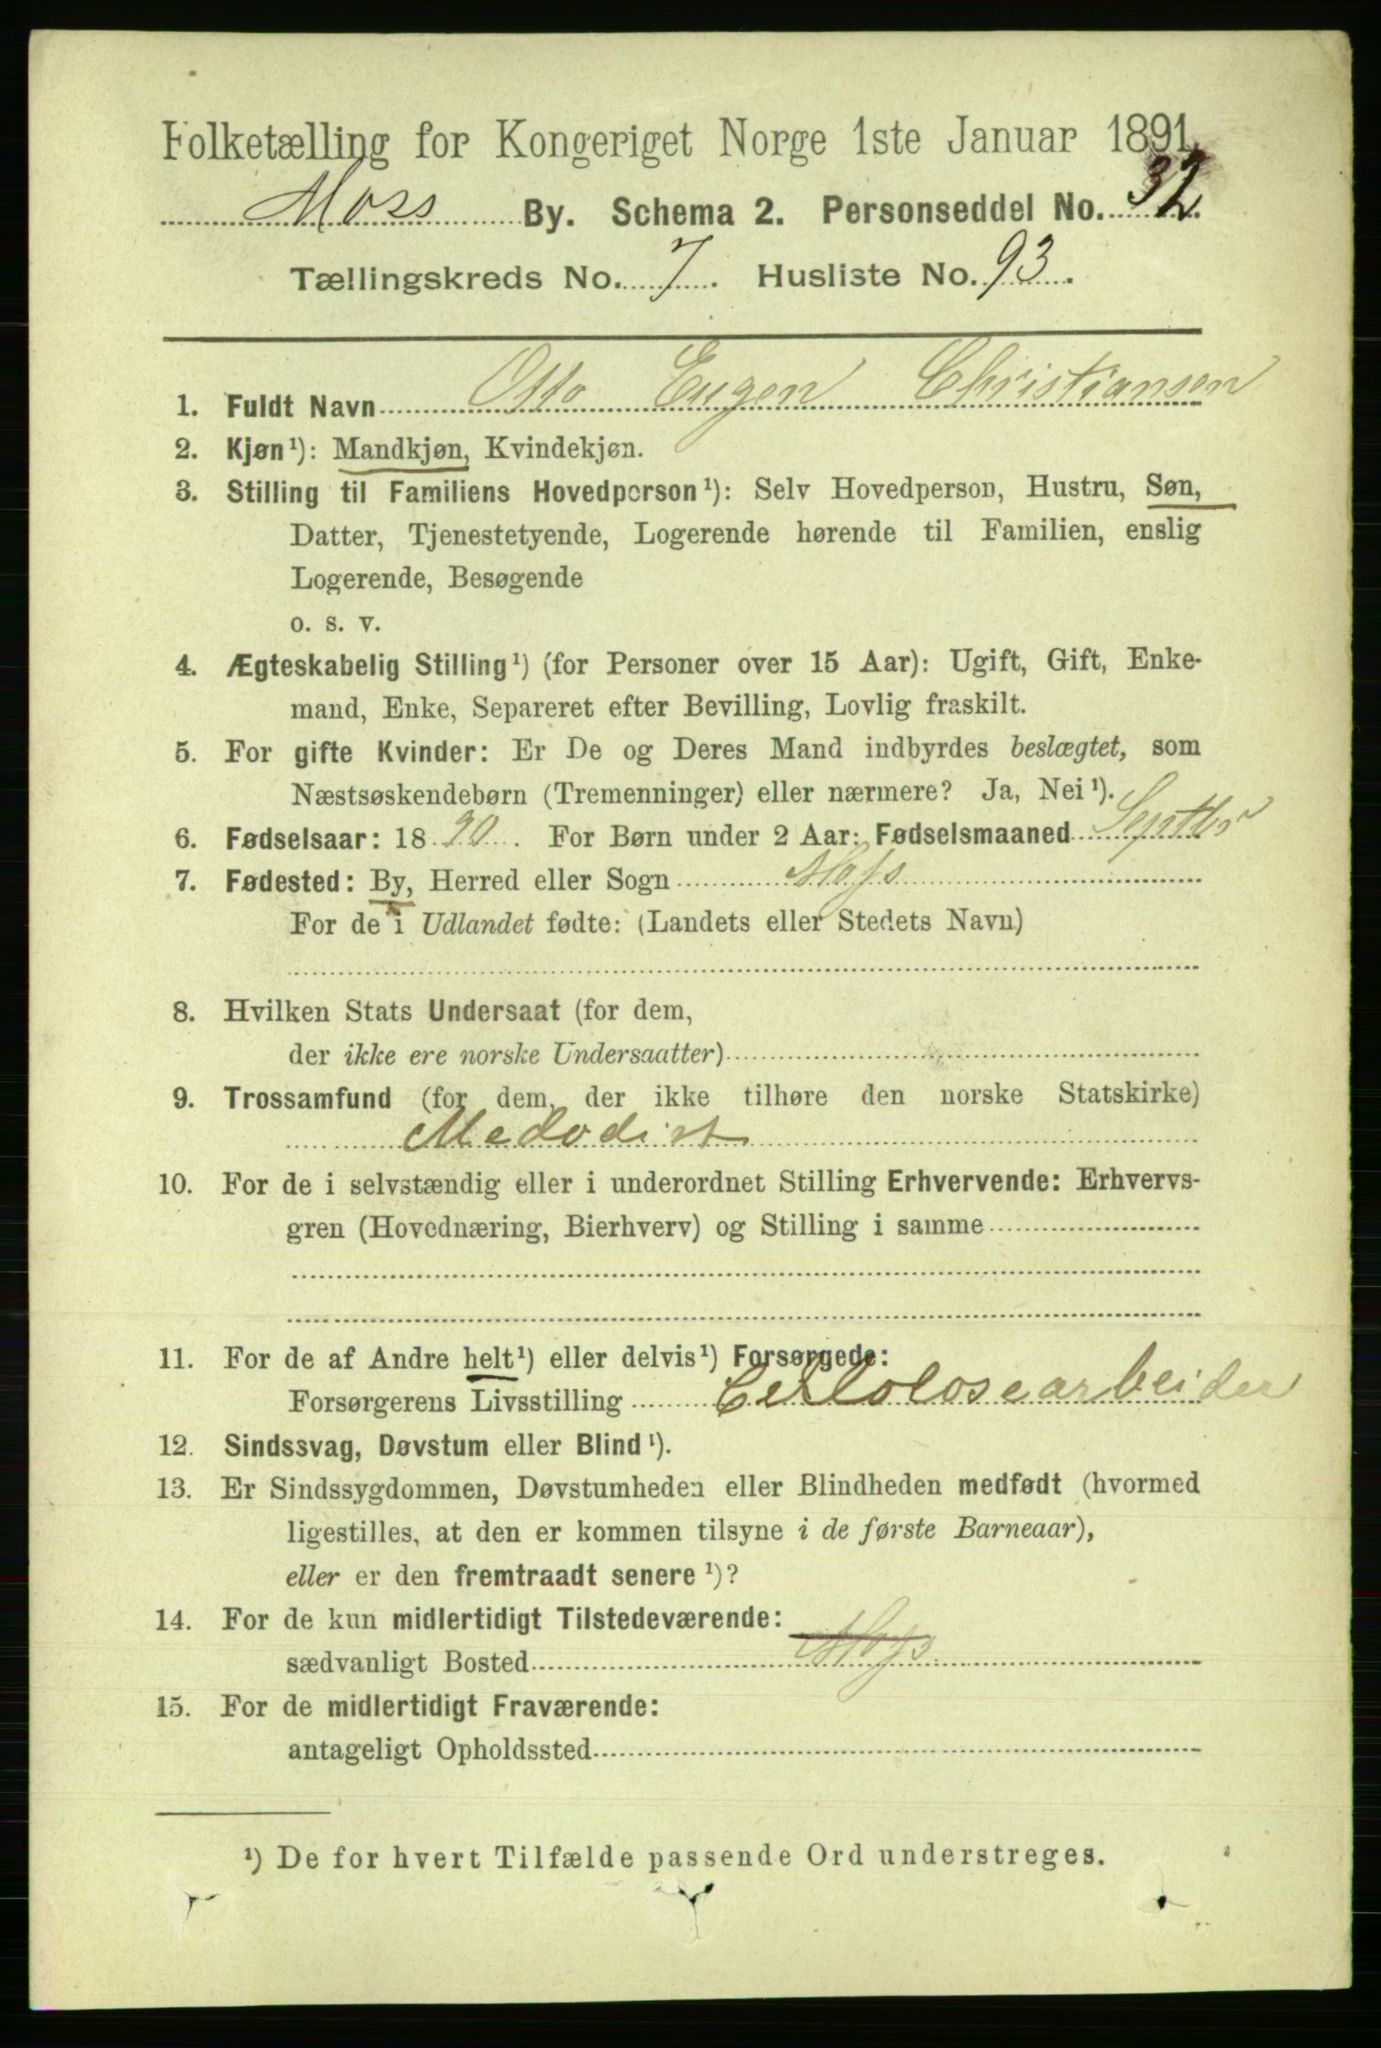 Folketælling for Kongeriget Norge 1ste Januar 1891.
Moss By. Schema 2. Personseddel No. 32.
Tællingskreds No. 7. Husliste No. 93.
1. Fuldt Navn Otto Eugen Christiansen
2. Kjøn¹): Mandkjøn, Kvindekjøn.
3. Stilling til Familiens Hovedperson¹): Selv Hovedperson, Hustru, Søn,
Datter, Tjenestetyende, Logerende hørende til Familien, enslig
Logerende, Besøgende
o. s. v.
4. Ægteskabelig Stilling¹) (for Personer over 15 Aar): Ugift, Gift, Enke-
mand, Enke, Separeret efter Bevilling, Lovlig fraskilt.
5. For gifte Kvinder: Er De og Deres Mand indbyrdes beslægtet, som
Næstsøskendebørn (Tremenninger) eller nærmere? Ja, Nei¹).
6. Fødselsaar: 1890. For Børn under 2 Aar: Fødselsmaaned Septbr
7. Fødested: By, Herred eller Sogn Moss
For de i Udlandet fødte: (Landets eller Stedets Navn)
8. Hvilken Stats Undersaat (for dem,
der ikke ere norske Undersaatter)
9. Trossamfund (for dem, der ikke tilhøre den norske Statskirke)
Medodist
10. For de i selvstændig eller i underordnet Stilling Erhvervende: Erhvervs-
gren (Hovednæring, Bierhverv) og Stilling i samme
11. For de af Andre helt¹) eller delvis¹) Forsørgede:
Forsørgerens Livsstilling Cellolosearbeider
12. Sindssvag, Døvstum eller Blind¹).
13. Er Sindssygdommen, Døvstumheden eller Blindheden medfødt (hvormed
ligestilles, at den er kommen tilsyne i de første Barneaar),
eller er den fremtraadt senere¹)?
14. For de kun midlertidigt Tilstedeværende:
sædvanligt Bosted Moss
15. For de midlertidigt Fraværende:
antageligt Opholdssted
¹) De for hvert Tilfælde passende Ord understreges.